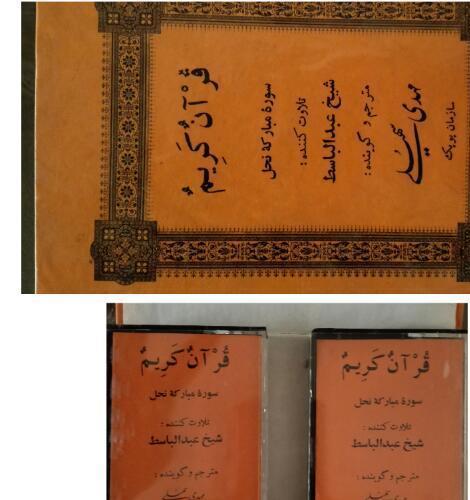 قُرْآنٌ کَرِیمٌ
سورهٔ مبارکهٔ نحل
تلاوت کننده :
شیخ عبدالباسط
مترجم و گوینده :
مهدی
سازمان
قُرْآنٌ کَرِیمٌ
سورهٔ مبارکهٔ نحل
تلاوت کننده :
شیخ عبدالباسط
مترجم و گوینده :
قُرْآنٌ کَرِیمٌ
سورهٔ مبارکهٔ نحل
تلاوت کننده :
شیخ عبدالباسط
مترجم و گوینده :